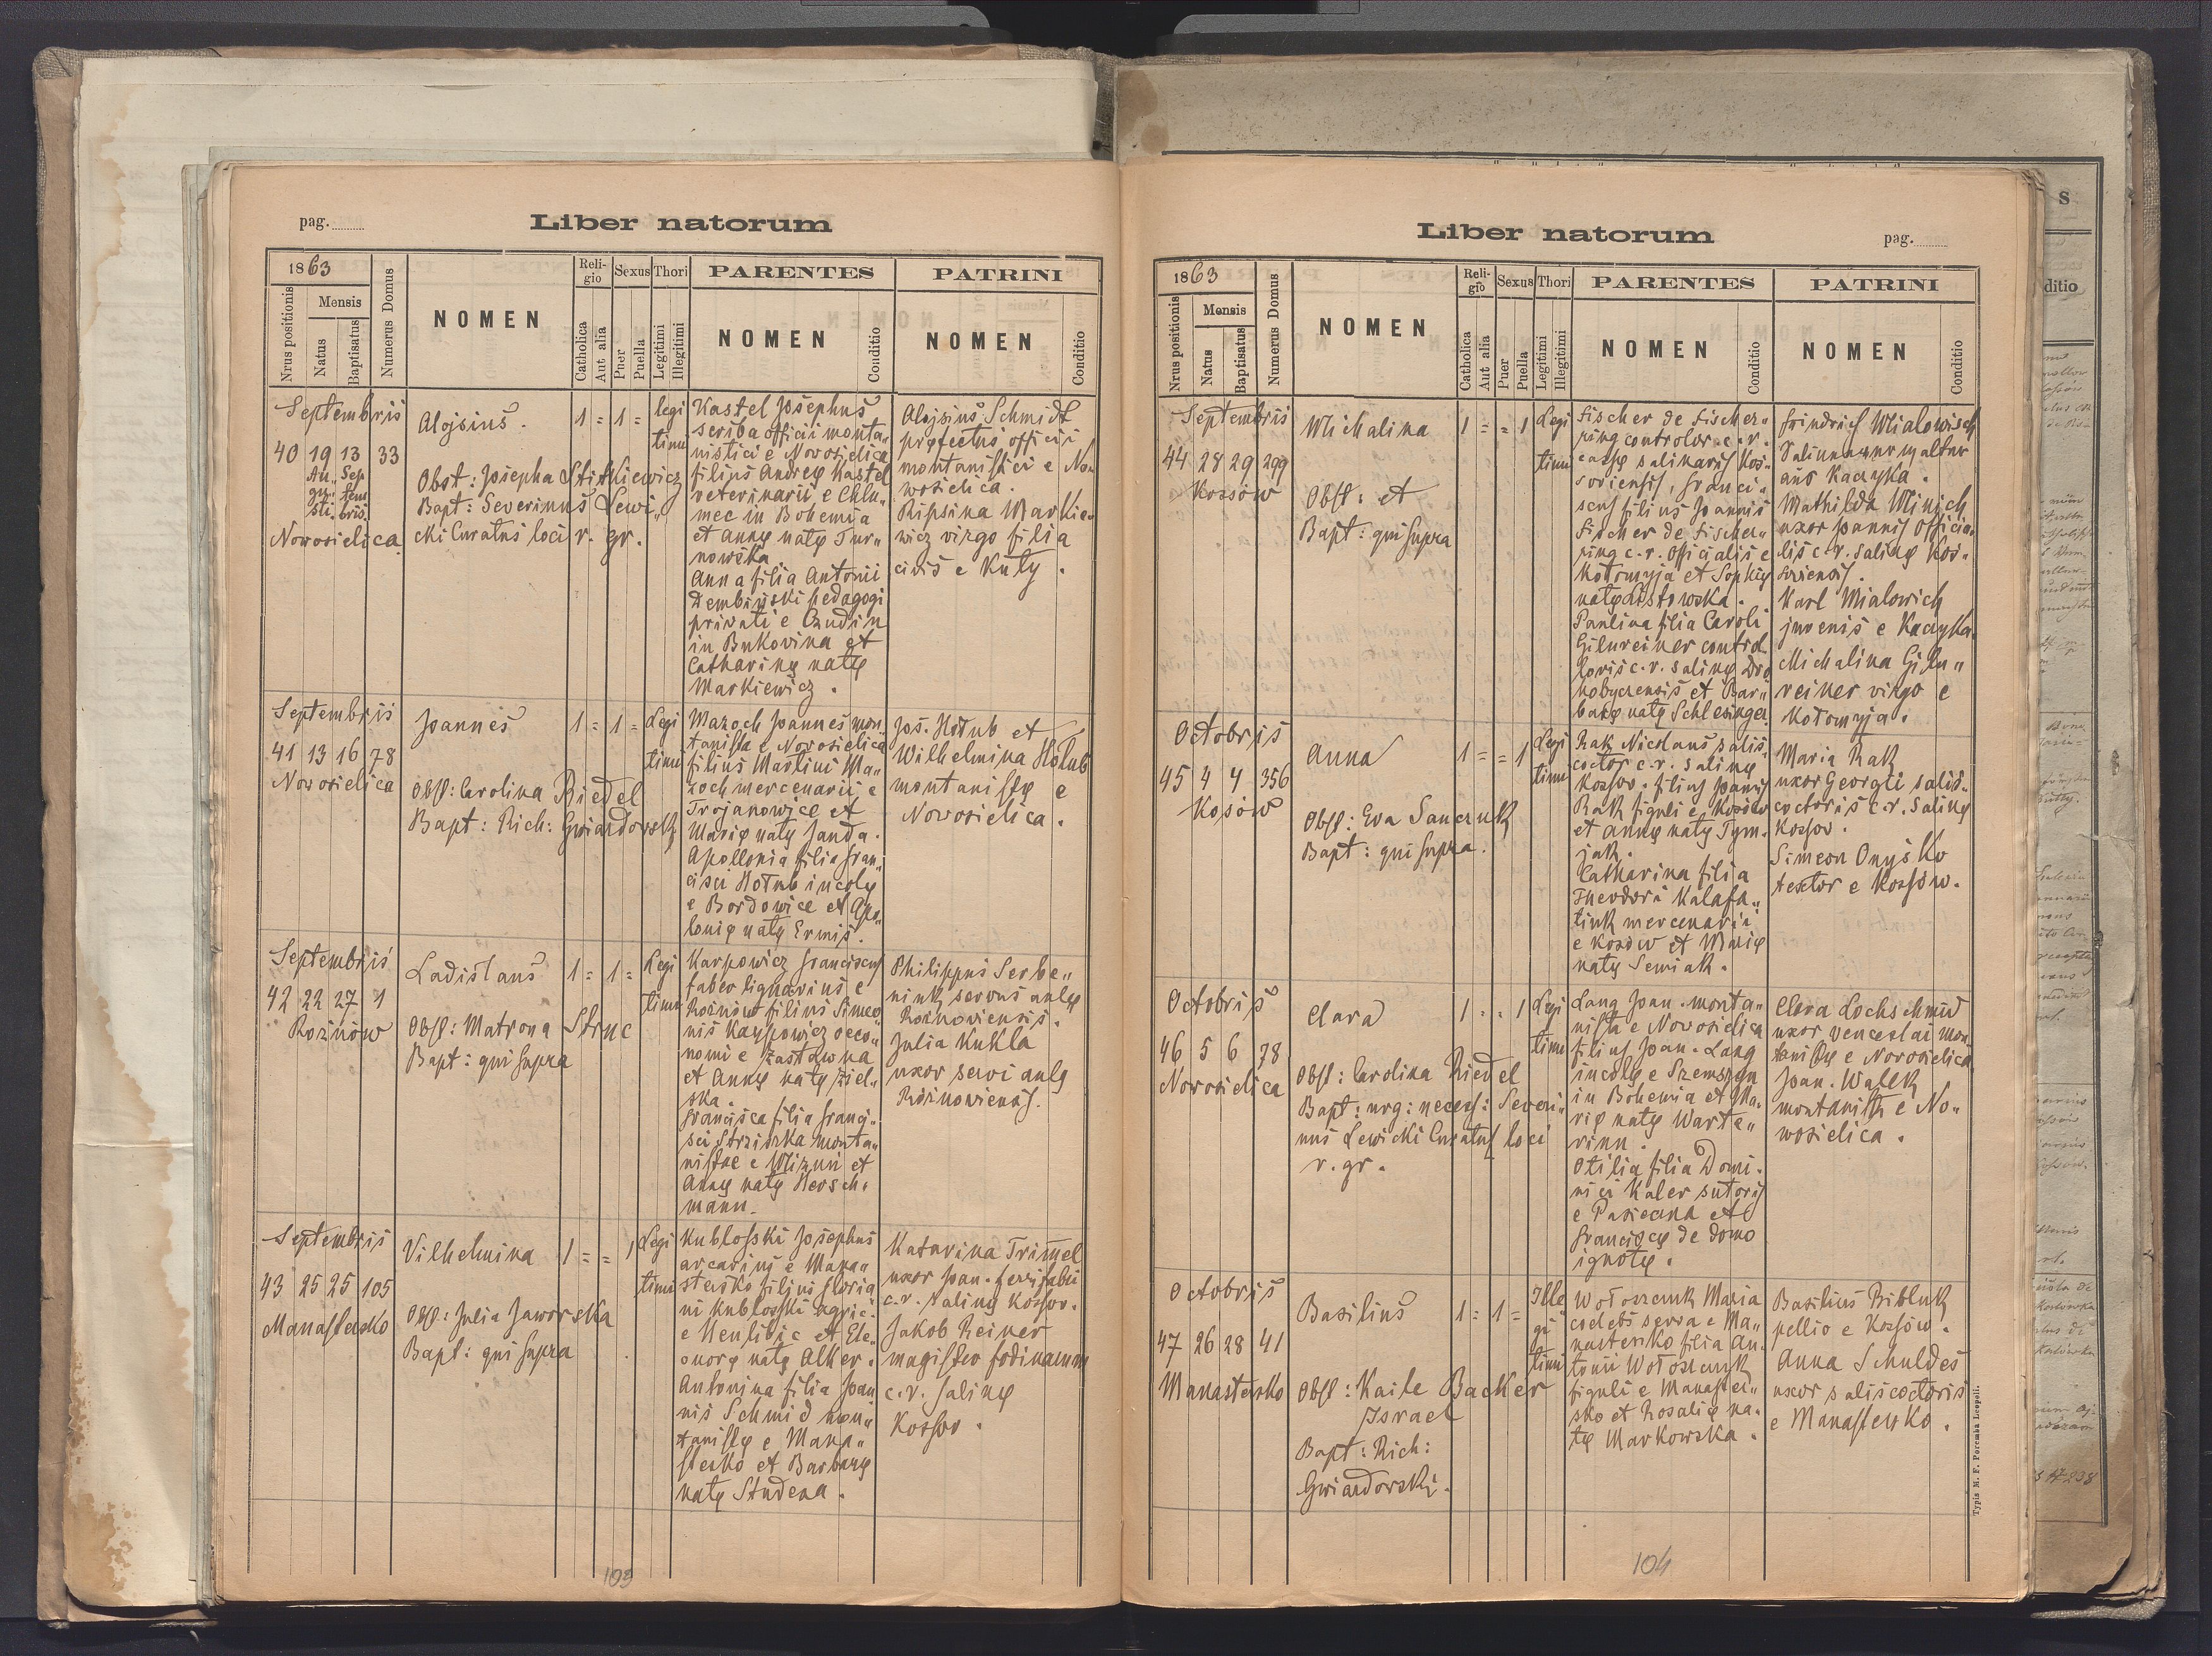 pag.
Liber natorum
1863
Nrus positionis
Mensis
Natus
Baptisatus
Numerus Domus
NOMEN
Religio
Catholica
Aut alia
Sexus
Puer
Puella
Thori
Legitimi
Illegitimi
PARENTES
NOMEN
Conditio
PATRINI
NOMEN
Conditio
Septembris
40 19 13 33
Au„ Sep
gu„ tem
sti bris
Nowosielica
Alojsius.
Obst: Josepha Stitkiewicz
Bapt: Severinus Lewi„
cki Curatus loci r. gr.
1 = 1 =
legi
timi
Kastel Josephus
scriba officii monta„
nistici e Novosielica
filius Andreę Kastel
veterinarii e Chlu„
mec in Bohemia
et Annę natę Tur„
nowska
Anna filia Antonii
Dembinski pedagogi
privati e Czudin
in Bukovina et
Catharinę natę
Markiewicz.
Alojsius Schmidt
pręfectus officii
montanistici e No„
wosielica.
Ripsina Markie„
wicz virgo filia
civis e Kuty.
Septembris
41 13 16 78
Novosielica
Joannes
Obst: Carolina Riedel
Bapt: Rich: Gwiazdowski
1 = 1 =
Legi
timi
Mazoch Joannes mon
tanista e Novosielica
filius Martini Ma„
zoch mercenarii e
Trojanowice et
Marię natę Janda.
Apollonia filia Fran„
cisci Hołub incolę
e Bordowice et Apo„
lonię natę Ermis.
Jos. Hołub et
Wilhelmina Hołub
montanistę e
Novosielica.
Septembris
42 22 27 1
Rożnów
Ladislaus
Obst: Matrona Struc
Bapt: qui supra
1 = 1 =
Legi
timi
Karpowicz Franciscus
faber lignarius e
Rożnów filius Simeo
nis Karpowicz oeco„
nomi e Zastawna
et Annę natę Ziel„
ska.
Francisca filia Franci„
sci Strziska monta„
nistae e Mizun et
Annę natę Hersch„
mann.
Philippus Serbe„
niuk servus aulę
Rożnoviensis.
Julia Kukla
uxor servi aulę
Rożnoviensis.
Septembris
43 25 25 105
Manastersko
Vilhelmina
Obst: Julia Jaworska
Bapt: qui supra
1 = = 1
Legi
timi
Kublosski Josephus
arcarius e Mana„
stersko filius Floria
ni Kublosski agric:
e Neulibic et Ele„
onorę natę Alker.
Antonina filia Joan
nis Schmid mon„
tanistę e Mana„
stersko et Barbarę
natę Studena.
Katarina Trimel
uxor Joan. ferrifabri
c.r. salinę Kossov.
Jakob Reiner
magister fodinarum
c.r. salinę
Kossov.
103
Liber natorum
pag.
1863
Nrus positionis
Mensis
Natus
Baptisatus
Numerus Domus
NOMEN
Religio
Catholica
Aut alia
Sexus
Puer
Puella
Thori
Legitimi
Illegitimi
PARENTES
NOMEN
Conditio
PATRINI
NOMEN
Conditio
Septembris
44 28 29 299
Kossów
Michalina
Obst: et
Bapt: qui supra
1 = = 1
Legi
timi
Fischer de Fischer„
ring controlor c.r.
cassę salinaris Kos„
soviensis, Franci„
scus filius Joannis
Fischer de Fischer„
ring c.r. officialis e
Kołomyja et Sophię
natę Listowska.
Paulina filia Caroli
Gilnreiner control
loris c.r. salinę Dro
hobycensis et Bar„
barę natę Schlesinger
Friedrich Mialowich
Mathilda Minich
uxor Joannis officia„
lis c.r. salinę Kos„
soviensis.
Karl Mialowich
juvenis e Kaczyka
Michalina Giln„
reiner virgo e
Kołomyja.
Octobris
45 4 4 356
Kosów
Anna
Obst: Eva Sauczuk
Bapt: qui supra.
1 = = 1
Legi
timi
Rak Nicolaus salis„
coctor c.r. salinę
Kossov. filius Joannis
Rak figuli e Kosów
et Annę natę Tym„
jak.
Catharina filia
Theodori Kalafa„
tiuk mercenarii
e Kosów et Marię
natę Semiak.
Maria Rak
uxor Georgii salis„
coctoris c.r. salinę
Kossov.
Simeon Onysko
textor e Kossów.
Octobris
46 5 6 78
Novosielica
Clara
Obst: Carolina Riedel
Bapt: urg: necess: Severi„
nus Lewicki Curatus loci
r. gr.
1 = = 1
Legi
timi
Lang Joan. monta„
nista e Novosielica
filius Joan. Lang
incolę e Szemszen
in Bohemia et Ma„
rię natę Warte„
rinn.
Otilia filia Domi„
nici Kaler sutoris
e Pasieczna et
Franciscę de domo
ignotę.
Clara Lochschmid
uxor Venceslai mon
tanistę e Novosielica
Joan. Walek
montanista e No„
wosielica.
Octobris
47 26 28 41
Manastersko
Basilius
Obst: Kaile Backer
Israel
Bapt: Rich:
Gwiazdorski.
1 = 1 =
Ille
gi
timi
Wołoszczuk Maria
coelebs serva e Ma„
nastersko filia An„
tonii Wołoszczuk
figuli e Manaster„
sko et Rosalię na„
tę Markowska.
Basilius Bibluk
pellio e Kossów.
Anna Schuldes
uxor saliscoctoris
e Manastersko.
104
Typis M. F. Poremba Leopoli.
S
ditio